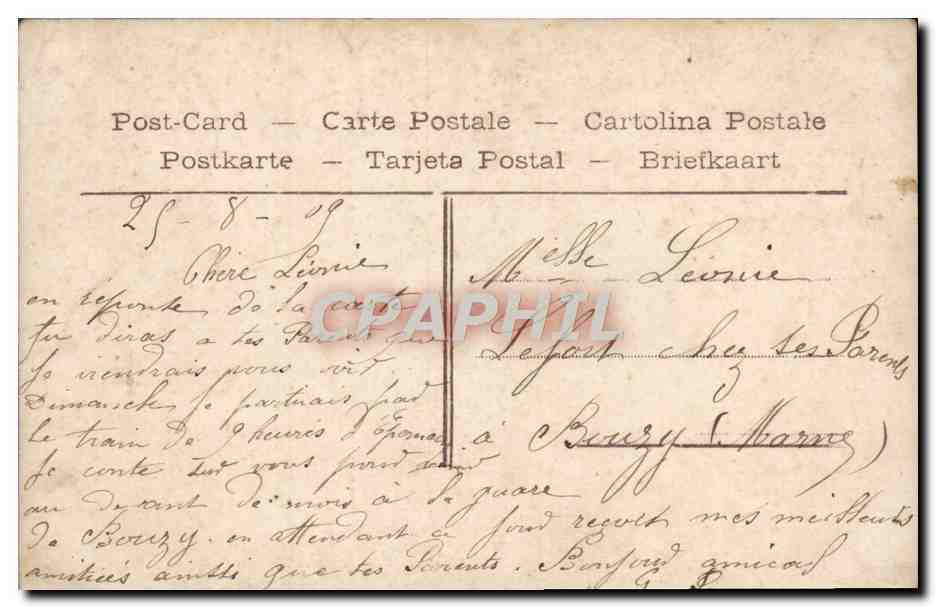 Post-Card — Carte Postale — Cartolina Postale
Postkarte — Tarjeta Postal — Briefkaart
25 - 8 - 09
Chère Léonie
en réponte dê la carte
tu diras a tes Parent que
Je viendrais vous voir
Dimanche Je partirais par
le train de 9 heures d'épernay
Je conte sur vous pour venir
au devant de mois à la guare
de Bouzy. en attendant ce jour reçoit mes meilleurs
amitiées ainssi que tes Parents. Bonjour amical
Melle Léonie
Lefort chez ses Parents
à Bouzy (Marne)
CPAPHIL